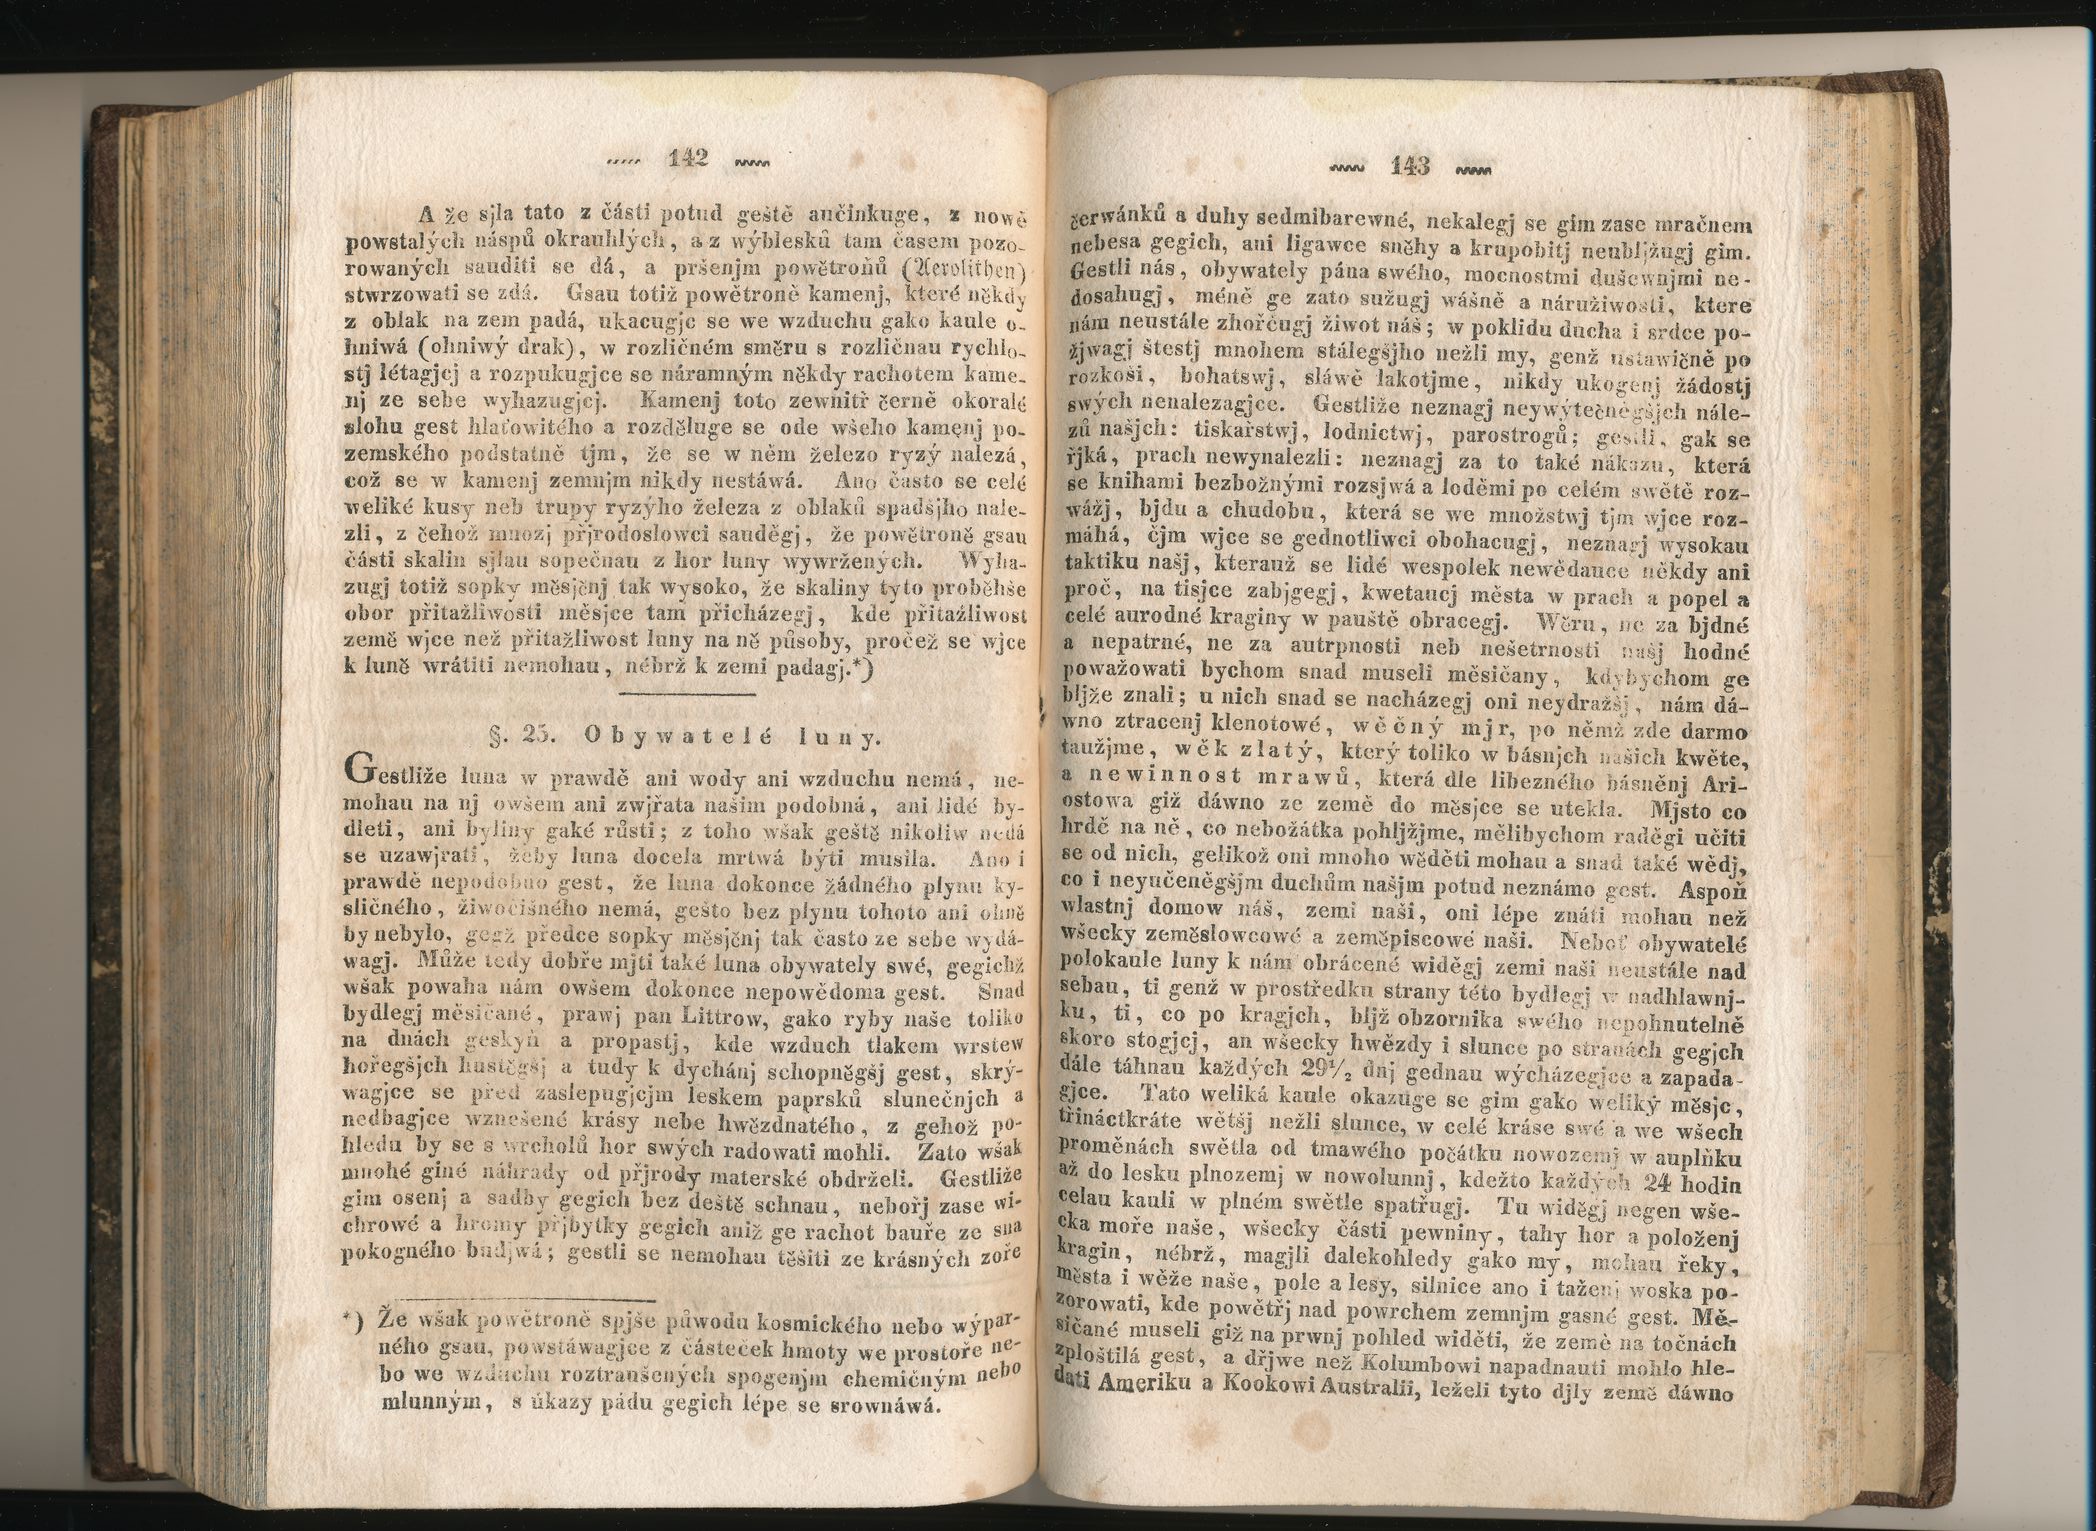 142
A že sjla tato z části potud geště aučinkuge, z nowě
powstalých náspů okrauhlých, a z wýblesků tam časem pozo-
rowaných sauditi se dá, a pršenjm powětroňů (Aerolithen)
stwrzowati se zdá. Gsau totiž powětroně kamenj, které někdy
z oblak na zem padá, ukacugjc se we wzduchu gako kaule o-
hniwá (ohniwý drak), w rozličném směru s rozličnau rychlo-
stj létagjcj a rozpukugjce se náramným někdy rachotem kame-
nj ze sebe wyhazugjcj. Kamenj toto zewnitř černě okoralé
slohu gest hlaťowitého a rozděluge se ode wšeho kamenj po-
zemského podstatně tjm, že se w něm železo ryzý nalezá,
což se w kamenj zemnjm nikdy nestáwá. Ano často se celé
weliké kusy neb trupy ryzýho železa z oblaků spadšjho nale-
zli, z čehož mnozj přjrodoslowci sauděgj, že powětroně gsau
části skalin sjlau sopečnau z hor luny wywržených. Wyha-
zugj totiž sopky měsjčnj tak wysoko, že skaliny tyto proběhše
obor přitažliwosti měsjce tam přicházegj, kde přitažliwost
země wjce než přitažliwost luny na ně působy, pročež se wjce
k luně wrátiti nemohau, nébrž k zemi padagj.*)
§. 25. Obywatelé luny.
Gestliže luna w prawdě ani wody ani wzduchu nemá, ne-
mohau na nj owšem ani zwjřata našim podobná, ani lidé by-
dleti, ani byliny gaké růsti; z toho wšak geště nikoliw nedá
se uzawjrati, žeby luna docela mrtwá býti musila. Ano i
prawdě nepodobno gest, že luna dokonce žádného plynu ky-
sličného, žiwočišného nemá, gešto bez plynu tohoto ani ohně
by nebylo, gegž předce sopky měsjčnj tak často ze sebe wydá-
wagj. Může tedy dobře mjti také luna obywately swé, gegichž
wšak powaha nám owšem dokonce nepowědoma gest. Snad
bydlegj měsičané, prawj pan Littrow, gako ryby naše toliko
na dnách geskyň a propastj, kde wzduch tlakem wrstew
hořegšjch hustěgšj a tudy k dychánj schopněgšj gest, skrý-
wagjce se před zaslepugjcjm leskem paprsků slunečnjch a
nedbagjce wznešené krásy nebe hwězdnatého, z gehož po-
hledu by se s wrcholů hor swých radowati mohli. Zato wšak
mnohé giné náhrady od přjrody materské obdrželi. Gestliže
gim osenj a sadby gegich bez deště schnau, nebořj zase wi-
chrowé a hromy přjbytky gegich aniž ge rachot bauře ze sna
pokogného budjwá; gestli se nemohau těšiti ze krásných zoře
*) Že wšak powětroně spjše půwodu kosmického nebo wýpar-
ného gsau, powstáwagjce z částeček hmoty we prostoře ne-
bo we wzduchu roztraušených spogenjm chemičným nebo
mlunným, s úkazy pádu gegich lépe se srownáwá.
143
čerwánků a duhy sedmibarewné, nekalegj se gim zase mračnem
nebesa gegich, ani ligawce sněhy a krupobitj neubljžugj gim.
Gestli nás, obywately pána swého, mocnostmi dušewnjmi ne-
dosahugj, méně ge zato sužugj wášně a náružiwosti, ktere
nám neustále zhořčugj žiwot náš; w poklidu ducha i srdce po-
žjwagj štestj mnohem stálegšjho nežli my, genž ustawičně po
rozkoši, bohatswj, sláwě lakotjme, nikdy ukogenj žádostj
swých nenalezagjce. Gestliže neznagj neywýtečněgšjch nále-
zů našjch: tiskařstwj, lodnictwj, parostrogů; gestli, gak se
řjká, prach newynalezli: neznagj za to také nákazu, která
se knihami bezbožnými rozsjwá a loděmi po celém swětě roz-
wážj, bjdu a chudobu, která se we množstwj tjm wjce roz-
máhá, čjm wjce se gednotliwci obohacugj, neznagj wysokau
taktiku našj, kterauž se lidé wespolek newědauce někdy ani
proč, na tisjce zabjgegj, kwetaucj města w prach a popel a
celé aurodné kraginy w pauště obracegj. Wěru, ne za bjdné
a nepatrné, ne za autrpnosti neb nešetrnosti našj hodné
považowati bychom snad museli měsičany, kdybychom ge
bljže znali; u nich snad se nacházegj oni neydražšj, nám dá-
wno ztracenj klenotowé, wěčný mjr, po němž zde darmo
taužjme, wěk zlatý, který toliko w básnjch našich kwěte,
a newinnost mrawů, která dle libezného básněnj Ari-
ostowa giž dáwno ze země do měsjce se utekla. Mjsto co
hrdě na ně, co nebožátka pohljžjme, mělibychom raděgi učiti
se od nich, gelikož oni mnoho wěděti mohau a snad také wědj,
co i neyučeněgšjm duchům našjm potud neznámo gest. Aspoň
wlastnj domow náš, zemi naši, oni lépe znáti mohau než
wšecky zeměslowcowé a zeměpiscowé naši. Neboť obywatelé
polokaule luny k nám obrácené widěgj zemi naši neustále nad
sebau, ti genž w prostředku strany této bydlegj w nadhlawnj-
ku, ti, co po kragjch, bljž obzornika swého nepohnutelně
skoro stogjcj, an wšecky hwězdy i slunce po stranách gegjch
dále táhnau každých 29½ dnj gednau wýcházegjce a zapada-
gjce. Tato weliká kaule okazuge se gim gako weliký měsjc,
třináctkráte wětšj nežli slunce, w celé kráse swé a we wšech
proměnách swětla od tmawého počátku nowozemj w auplňku
až do lesku plnozemj w nowolunnj, kdežto každých 24 hodin
celau kauli w plném swětle spatřugj. Tu widěgj negen wše-
cka moře naše, wšecky části pewniny, tahy hor a položenj
kragin, nébrž, magjli dalekohledy gako my, mohau řeky,
města i wěže naše, pole a lesy, silnice ano i taženj woska po-
zorowati, kde powětřj nad powrchem zemnjm gasné gest. Mě-
sičané museli giž na prwnj pohled widěti, že země na točnách
zploštilá gest, a dřjwe než Kolumbowi napadnauti mohlo hle-
dati Ameriku a Kookowi Australii, leželi tyto djly země dáwno